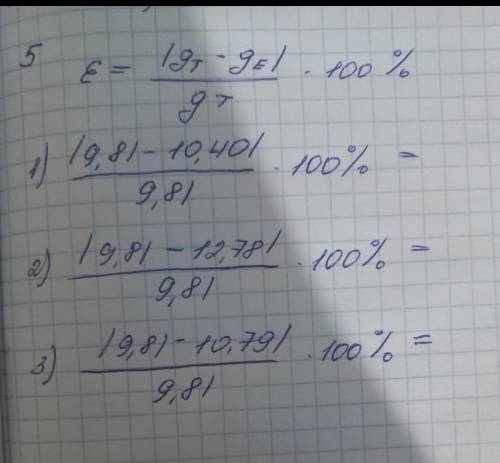 5 ε = |g_T - g_E| / g_T · 100%
1) |9,81 - 10,40| / 9,81 · 100% =
2) |9,81 - 12,78| / 9,81 · 100% =
3) |9,81 - 10,79| / 9,81 · 100% =